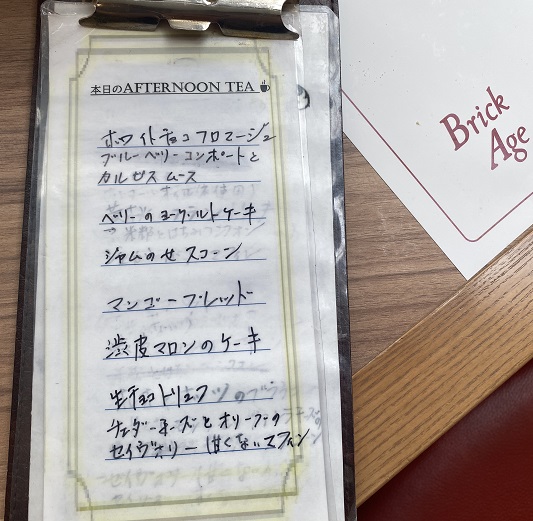 本日のAFTERNOON TEA
ホワイトチョコフロマージュ
ブルーベリーコンポートと
カルピス ムース
ベリーのヨーグルトケーキ
ジャムのせ スコーン
マンゴーブレッド
渋皮マロンのケーキ
生チョコトリュフ
チェダーチーズとオリーブの
セイヴォリー 甘くないマフィン
Brick
Age